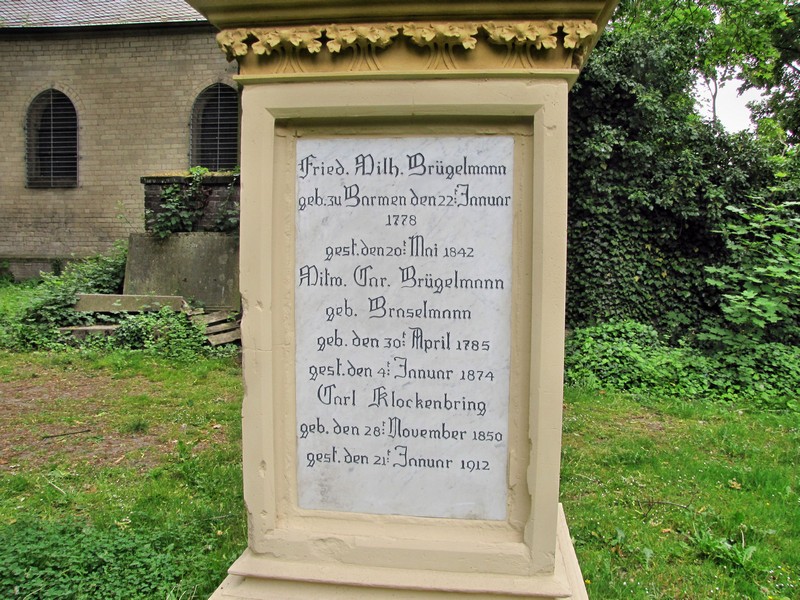 Fried. Wilh. Brügelmann
geb. zu Barmen den 22t Januar
1778
gest. den 20t Mai 1842
Witw. Car. Brügelmann
geb. Braselmann
geb. den 30t April 1785
gest. den 4t Januar 1874
Carl Klockenbring
geb. den 28t November 1850
gest. den 21t Januar 1912